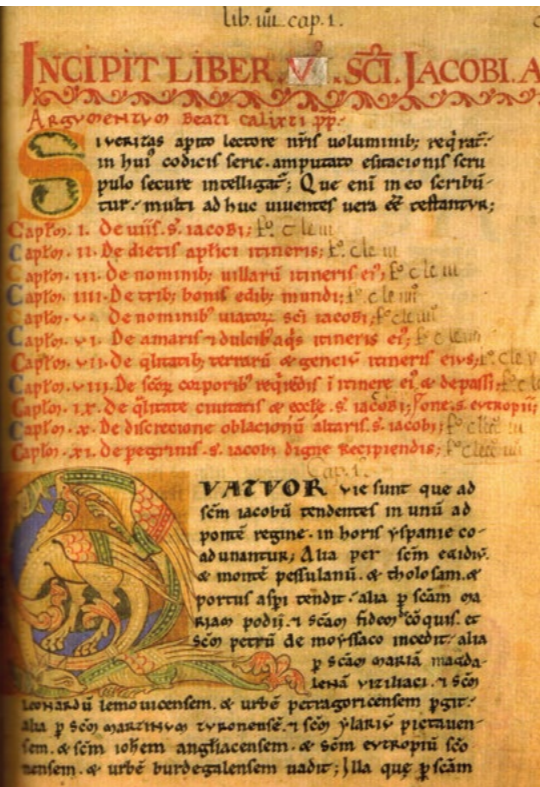 lib. iiii. cap. 1.
INCIPIT LIBER. V. SCI. JACOBI. A
Argumentum beati calixti pp.
Si veritas apto lectore nris voluminib; reqrat.
in hui codicis serie. amputato esitacionis scru
pulo secure intelligat; Que eni in eo scribū-
tur. multi ad huc viventes vera eē testantur;
Caplm. I. De viis. s. iacobi;
Caplm. II. De dietis aplici itineris;
Caplm. III. De nominib; villarū itineris ei;
Caplm. IIII. De trib; bonis edib; mundi;
Caplm. V. De nominib viator sci iacobi;
Caplm. VI. De amaris & dulcib aqis itineris ei;
Caplm. VII. De qlitatib; terrarū & genciū itineris eius;
Caplm. VIII. De scor corporib reqrēdis i itinere ei & de passi
Caplm. IX. De qlitate civitatis & eccle. s. iacobi; s. eutropii;
Caplm. X. De discretione oblacionū altaris. s. iacobi;
Caplm. XI. De pegrinis. s. iacobi digne recipiendis;
Cap. 1.
QUATUOR vie sunt que ad
scm iacobū tendentes in unū ad
pontē regine. in horis yspanie co-
adunantur; Alia per scm egidiū.
& montē pessulanū. & tholosam. &
portus aspi tendit. alia p scam ma
riam podii. & scam fidem cōquis. et
scm petrū de moyssaco incedit. alia
p scam mariā magda-
lenā viziliaci. & scm
leonardū lemovicensem. & urbē petragoricensem pgit.
alia p scm martinum turonensē. & scm ylariū pictaven-
sem. & scm iohem angliacensem. & scm eutropiū sco
nensem. & urbē burdegalensem vadit; Illa que p scam